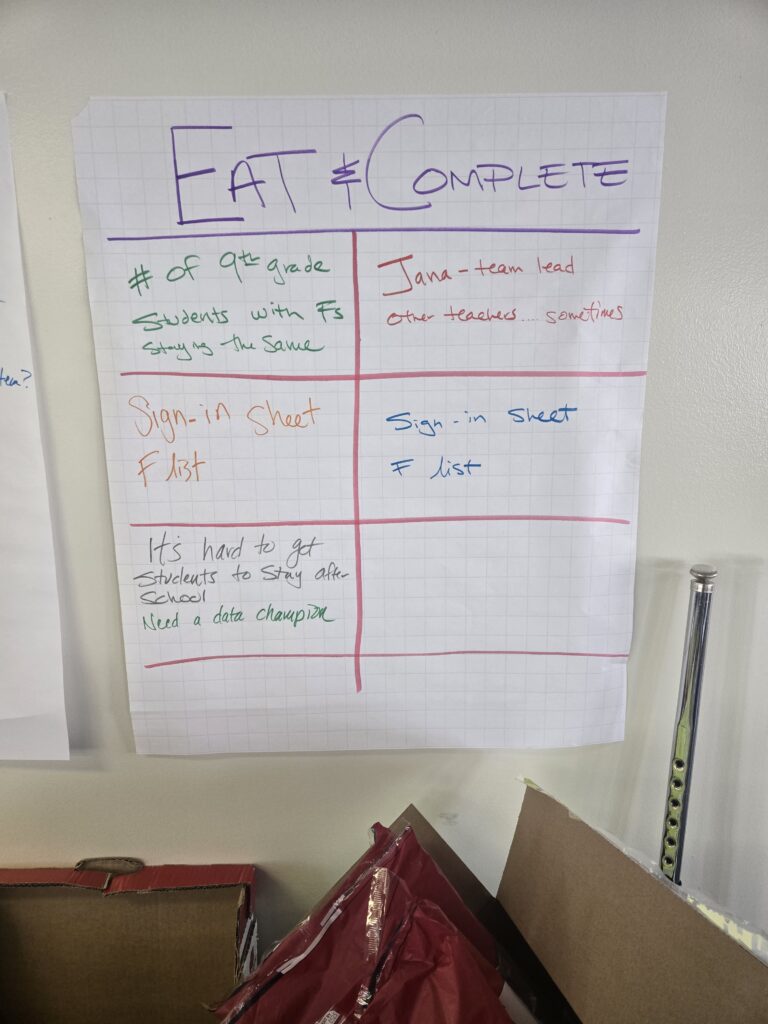 EAT & COMPLETE
# of 9th grade
Students with Fs
staying the same
Jana - team lead
other teachers.... sometimes
Sign-in sheet
F list
Sign-in sheet
F list
It's hard to get
students to stay after-
school
Need a data champion